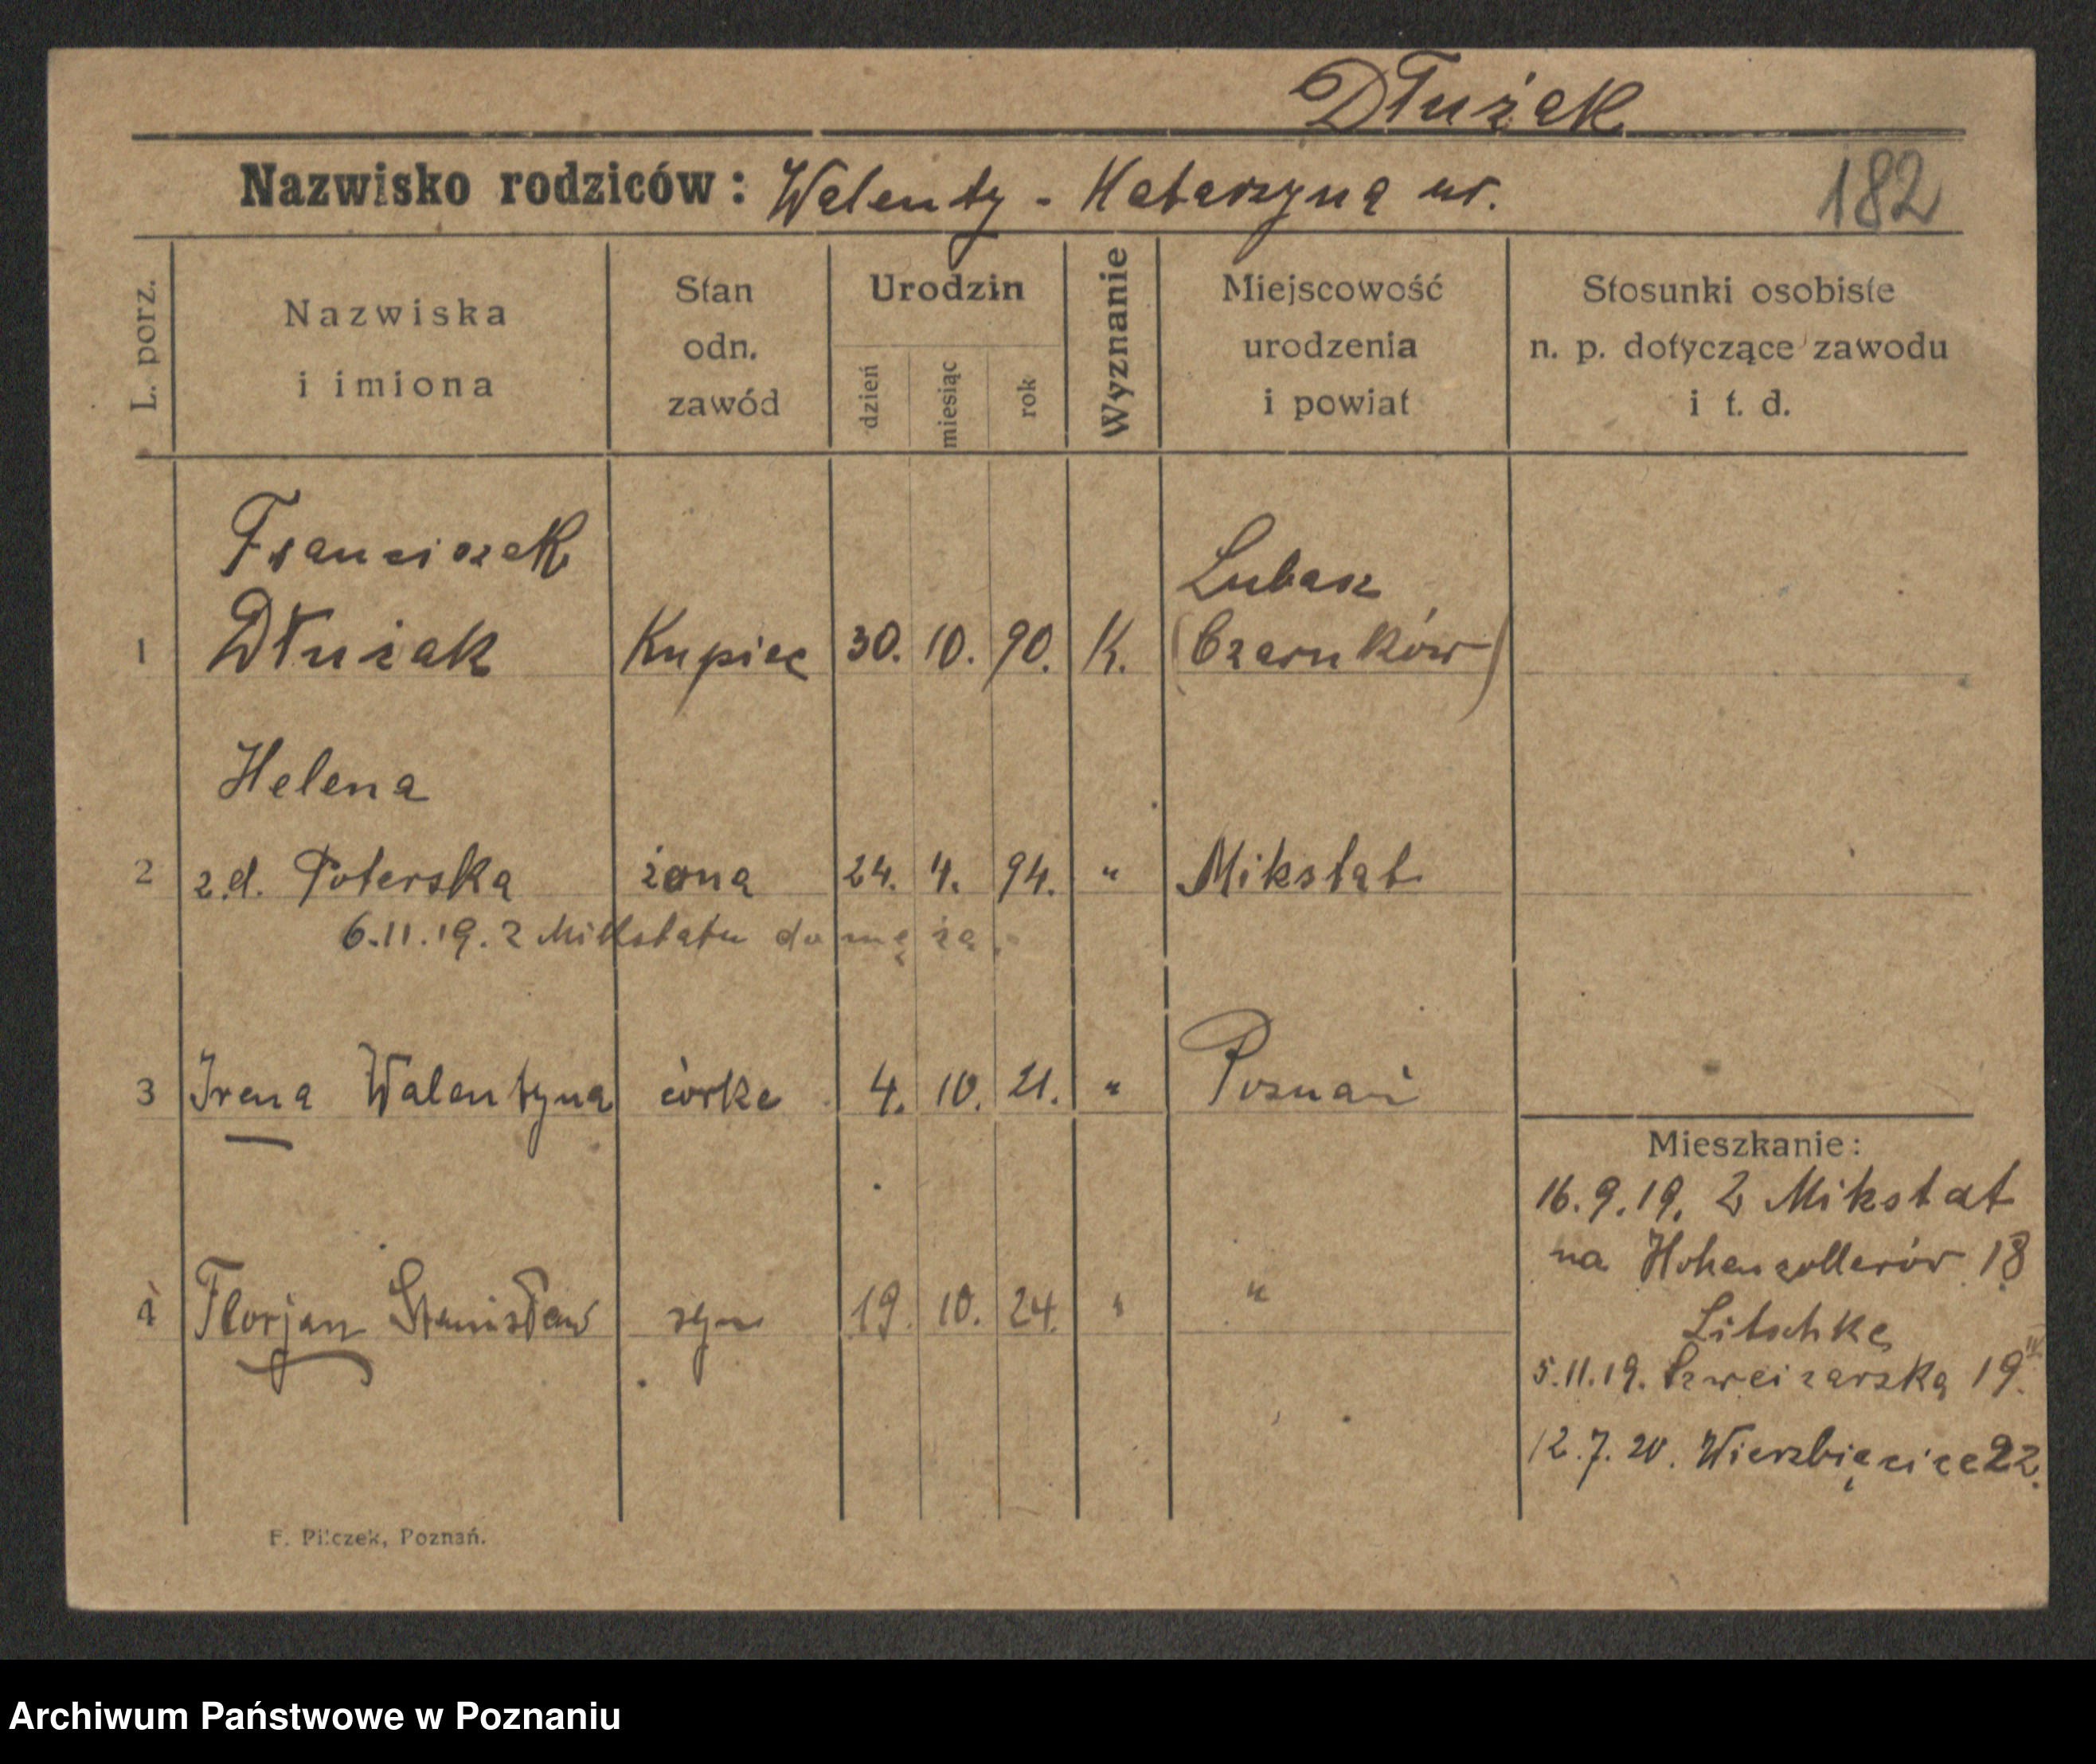 Dłużak
Nazwisko rodziców: Walenty - Katarzyna ur.
182
L. porz.
Nazwiska
i imiona
Stan
odn.
zawód
Urodzin
dzień
miesiąc
rok
Wyznanie
Miejscowość
urodzenia
i powiat
Stosunki osobiste
n. p. dotyczące zawodu
i t. d.
Franciszek
Lubasz
1 Dłużak Kupiec 30. 10. 90. K. (Czarnków)
Helena
2 z.d. Poterska żona 24. 4. 94. " Mikstat
6.11.19. z Mikstatu do męża.
3 Irena Walentyna córka 4. 10. 21. " Poznań
4 Florjan Stanisław syn 19. 10. 24. " "
Mieszkanie:
16.9.19. z Mikstat
na Hohenzollerów 18
Litschke
5.11.19. Szweizarska 19.
12.7.20. Wierzbięcice 22.
F. Pilczek, Poznań.
Archiwum Państwowe w Poznaniu